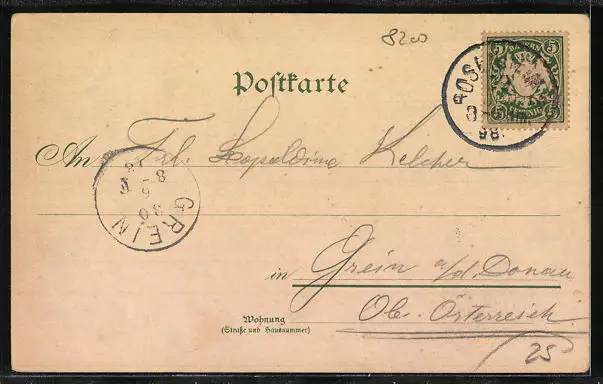 8200
5 BAYERN 5
Postkarte
98
An Frl. Leopoldine Kelcher
GREIN
in Grein a/d. Donau
Ob. Österreich
Wohnung
(Straße und Hausnummer)
25